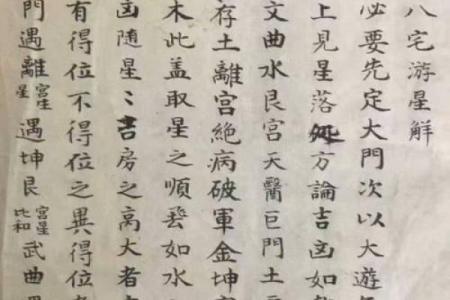 八宅游星解
必要先定大門次以大遊
上見星落処方論吉凶如
文曲水艮宮天醫巨門土
存土離宮絶病破軍金坤
木此盖取星之順如水
凶随星〻吉房之高大者
有得位不得位之異得位
門遇離宮生星遇坤艮宮星比和武曲